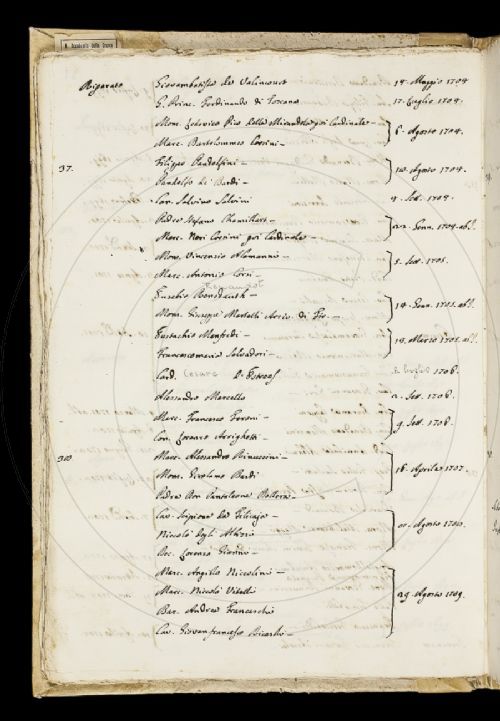 Riparato Giovambatista de Valincourt 14. Maggio 1704
G. Princ. Ferdinando di Toscana 17. Luglio 1704.
Mons. Lodovico Pico della Mirandola poi Cardinale –
6. Agosto 1704.
Marc. Bartolommeo Corsini –
37. Filippo Pandolfini –
Agosto 1704.
Pandolfo de' Bardi –
Cav. Salvino Salvini 4. Sett. 1704.
Padre Stefano Chamillart –
Genn. 1704. ab I.
Marc. Neri Corsini poi Cardinale –
Mons. Vincenzio Alamanni –
5. Sett. 1705.
Marc. Antonio Corsi –
Renaudot
Eusebio –
14. Genn. 1705. ab I.
Mons. Giuseppe Martelli Arciv. di Fir. –
Eustachio Manfredi –
Marzo 1705. ab I.
Francescomaria Salvadori –
Card. Cesare D'Estrees Luglio 1706.
Alessandro Marcello Sett. 1706.
Marc. Francesco Feroni –
9. Sett. 1706.
Con. Lorenzo Arrighetti –
Marc. Alessandro Rinuccini –
Mons. Girolamo Bardi
16. Aprile 1707.
Padre Don Pantaleone Dolera –
Cav. Scipione da Filicaja –
Niccolò degli Albizi
Agosto
Lorenzo
Marc. Angelo Niccolini –
Marc. Niccolò Vitelli
29. Agosto 1709.
Bar. Andrea Franceschi
Cav. Giovanfrancesco Ricasoli –